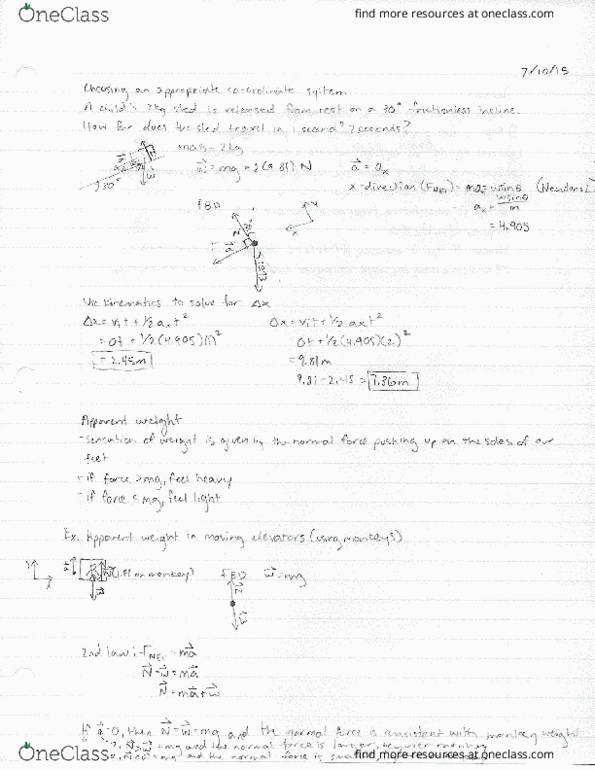 OneClass
find more resources at oneclass.com
7/10/15
Choosing an appropriate co-ordinate system.
A child's 2kg sled is released from rest on a 30° frictionless incline.
How far does the sled travel in 1 second? 2 seconds?
mass = 2kg
w = mg = 2(9.81) N
a = ax
30°
x-direction (FNET) = max = wsinθ (Newtons 2)
ax = wsinθ/m
= 4.905
FBD
y
x
Use kinematics to solve for Δx
Δx = vit + 1/2 axt²
Δx = vit + 1/2 axt²
= 0t + 1/2(4.905)(1)²
0t + 1/2(4.905)(2)²
= 2.45m
= 9.81m
9.81 - 2.45 = 7.36m
Apparent weight
- sensation of weight is given by the normal force pushing up on the soles of our
feet
- if force > mg, feel heavy
- if force < mg, feel light
Ex. Apparent weight in moving elevators (using monkeys)
y
x
on monkey)
FBD
w = mg
2nd law: FNET = ma
N - w = ma
N = ma + w
If a = 0, then N = w = mg and the normal force is consistent with monkey weight
mg and the normal force is
mg and the normal force is
OneClass
find more resources at oneclass.com